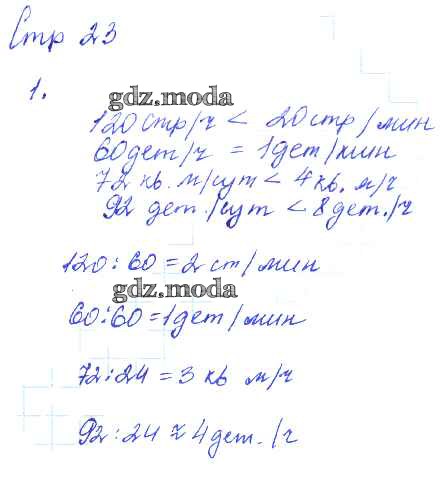 Стр 23
1.
gdz.moda
120 стр/ч < 20 стр/мин
60 дет/ч = 1 дет/мин
72 кв. м/сут < 4 кв. м/ч
92 дет./сут < 8 дет./ч
120 : 60 = 2 ст/мин
gdz.moda
60 : 60 = 1 дет/мин
72 : 24 = 3 кв м/ч
92 : 24 ≈ 4 дет./ч